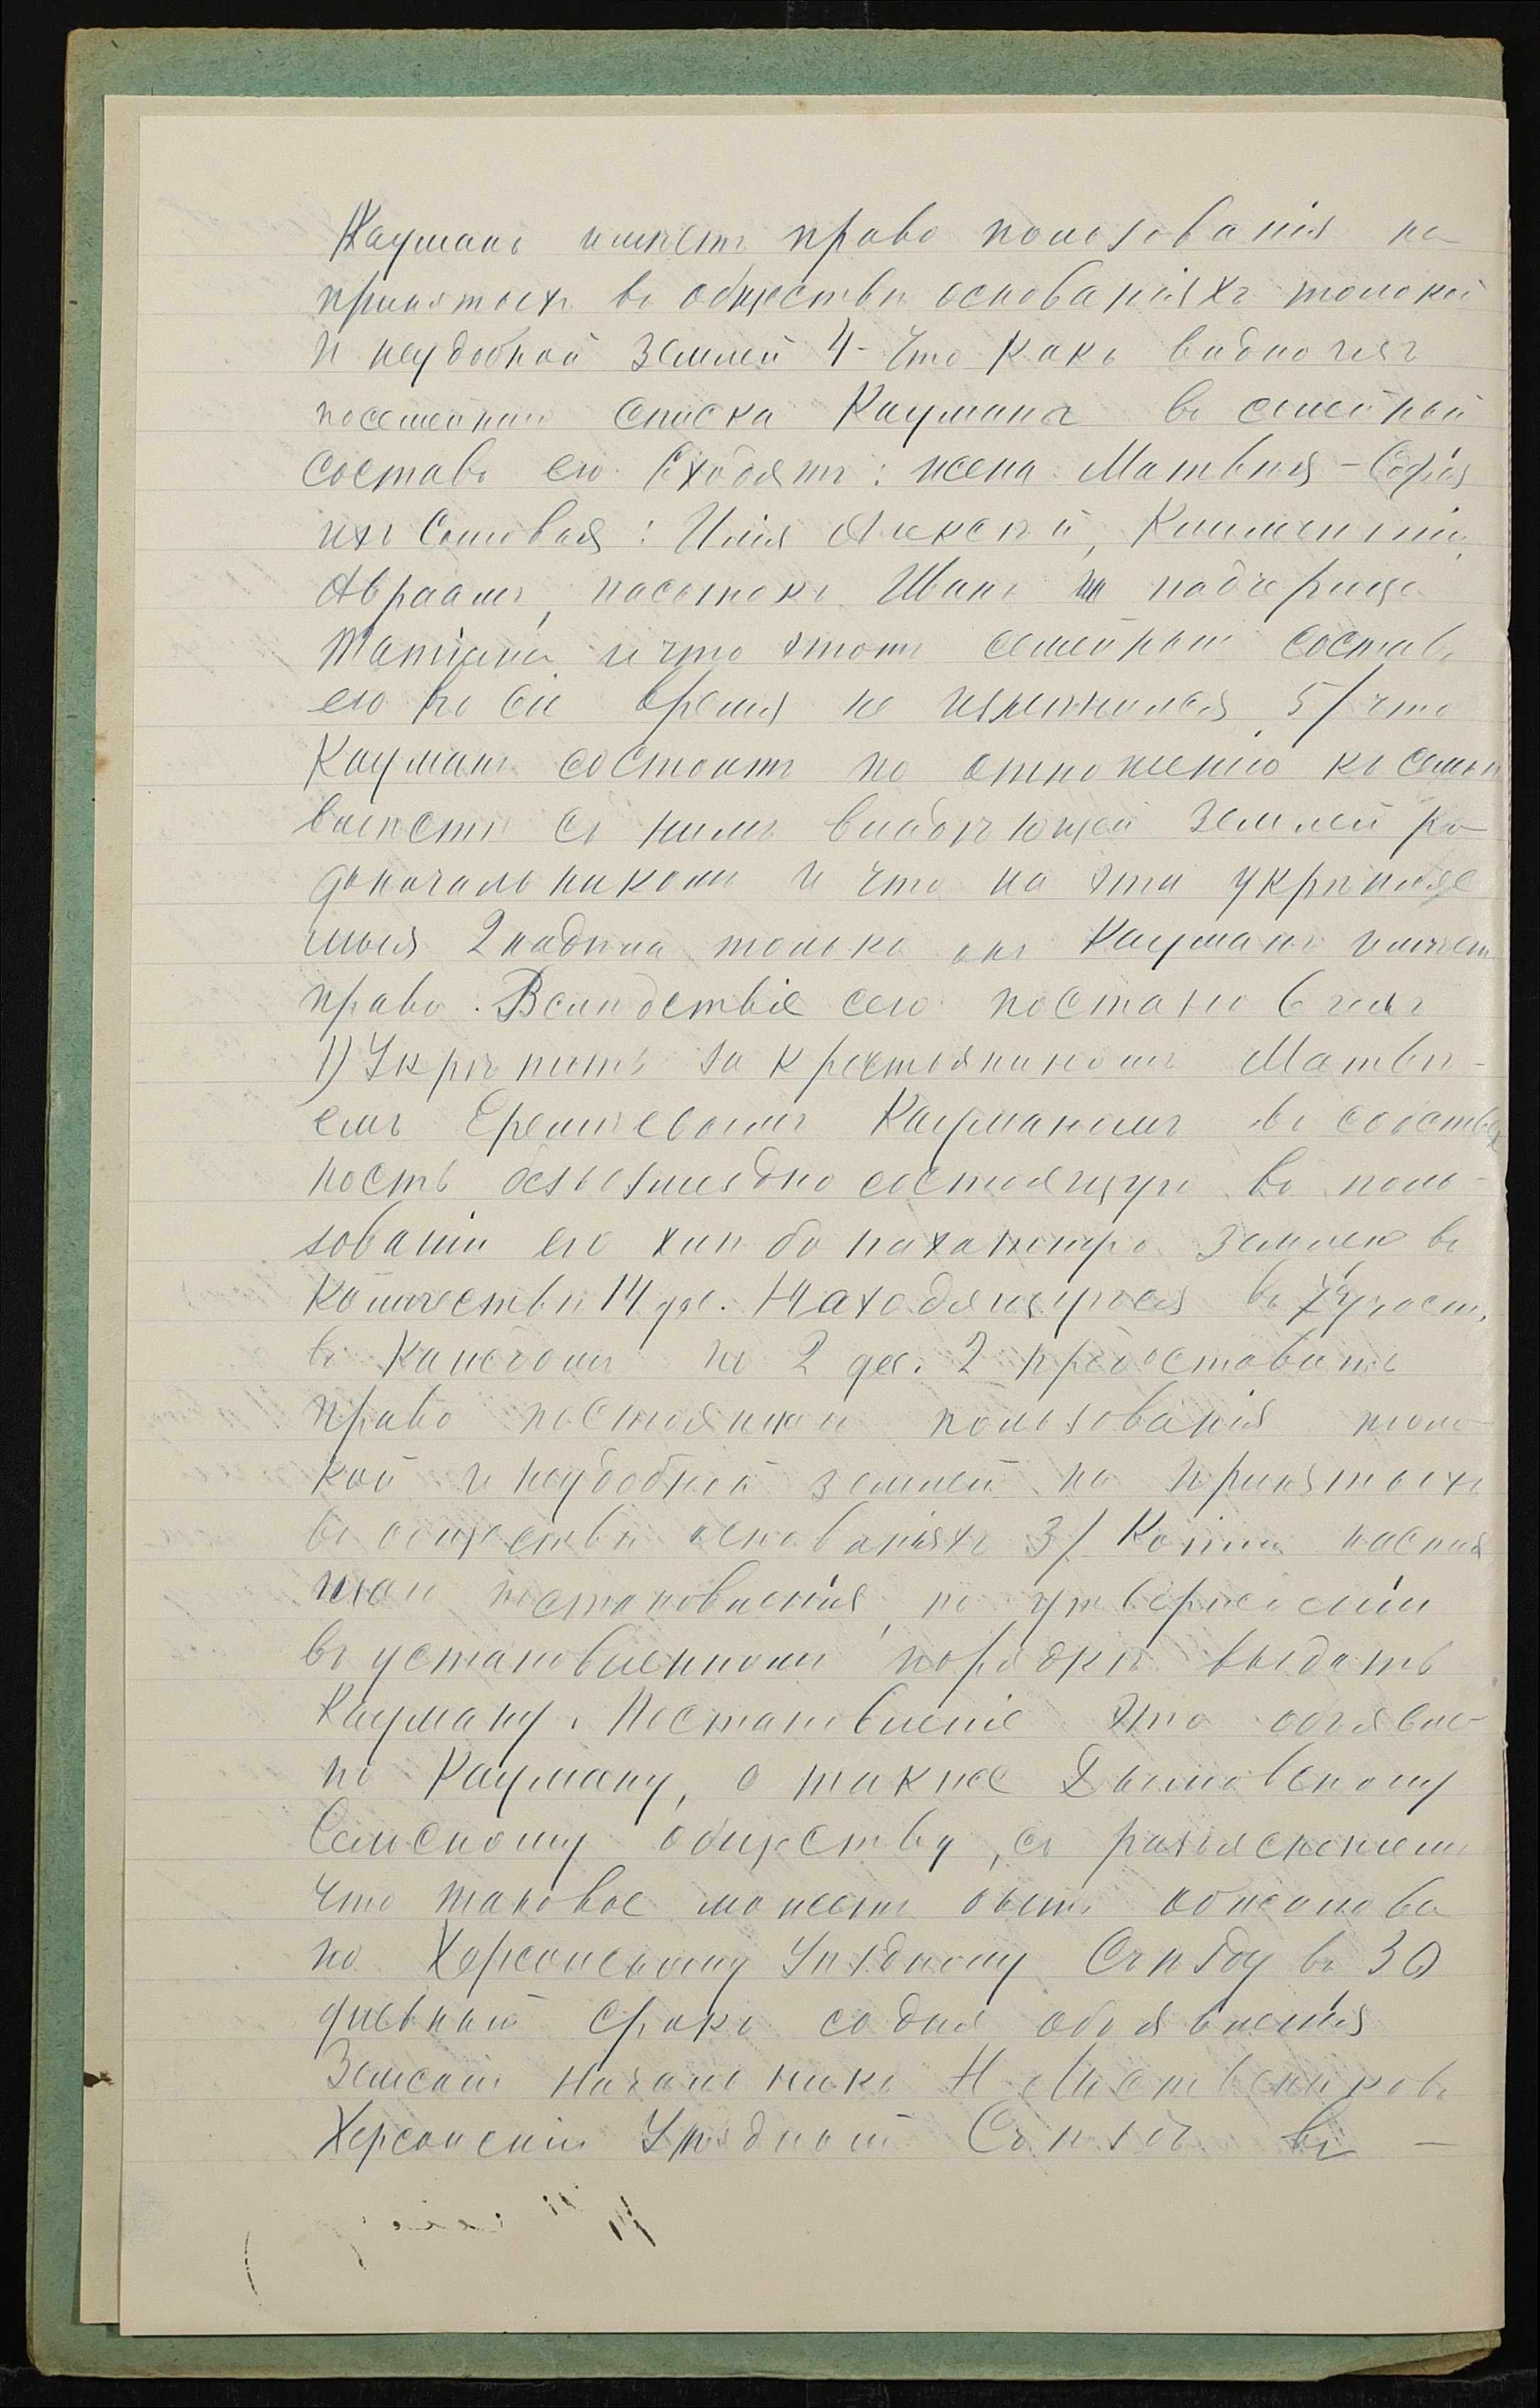 Кауманъ имѣетъ право пользованія на
принятыхъ въ обществѣ основаніяхъ толокой
и неудобной землей 4- Что какъ видно изъ
посемейнаго списка Каумана въ семейный
составъ его входятъ: жена Матвѣя - Софія
ихъ сыновья: Илія Алексѣй, Климентій,
Авраамъ, пасынокъ Иванъ и падчерица
Татіана и что этотъ семейный составъ
его по сіе время не измѣнился, 5/ что
Кауманъ состоитъ по отношенію къ семьѣ
вмѣстѣ съ нимъ владѣющей землей ро-
доначальникомъ и что на эти укрѣпляе
мыя 2 надѣла только онъ Кауманъ имѣетъ
право. Вслѣдствіе сего постановилъ
1) Укрѣпить за крестьяниномъ Матвѣ-
емъ Еремѣевымъ Кауманомъ въ собствен
ность безвозмездно состоящую въ поль-
зованіи его надѣльную пахатную землю въ
количествѣ 14 дес. Находящуюся въ 7 участ.
въ каждомъ по 2 дес. 2 предоставить
право постояннаго пользованія толо-
кой и неудобной землей на принятыхъ
въ обществѣ основаніяхъ 3/ Копію настоя
щаго постановленія, по утвержденіи
въ установленномъ порядкѣ выдать
Кауману. Постановленіе это объявле-
но Кауману, а также
Сельскому обществу, съ разъясненіемъ
что таковое можетъ быть обжаловано
по Херсонскому Уѣздному Съѣзду въ 30
дневный срокъ со дня объявленія
Земскій Начальникъ Н. Листвениковъ
Херсонскій Уѣздный Съѣздъ въ —